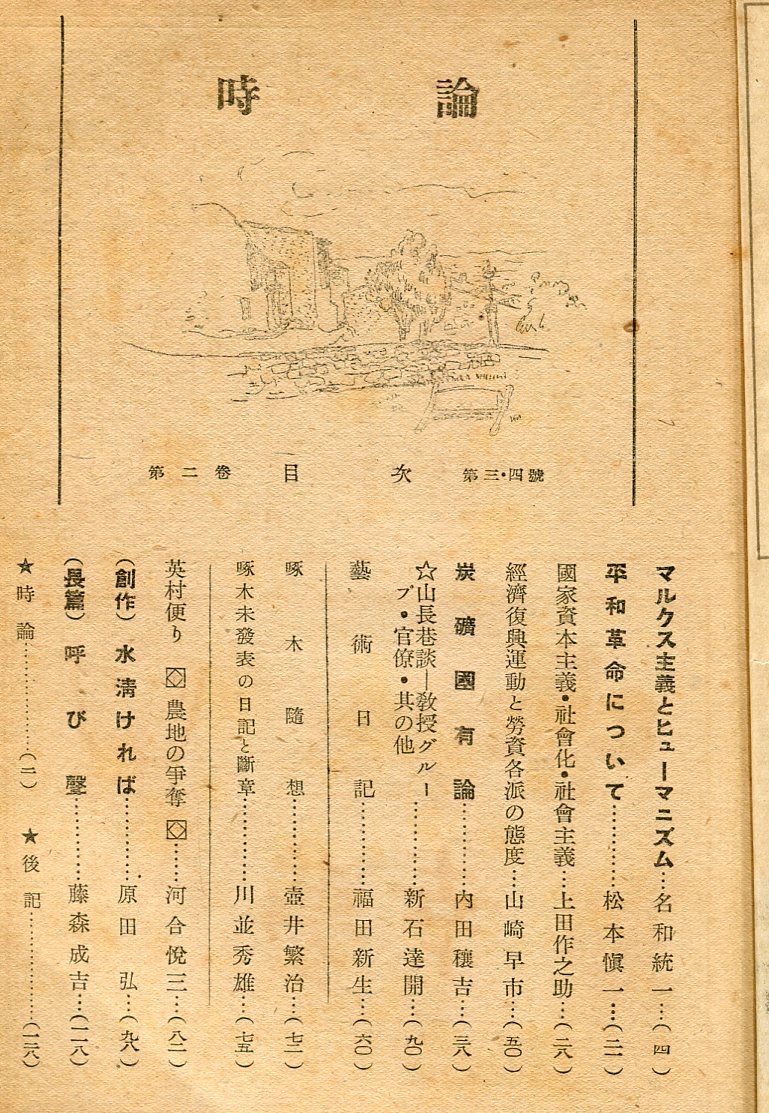 時論
第二卷 目次 第三・四號
マルクス主義とヒューマニズム…名和統一…(四)
平和革命について…………松本愼一…(二一)
國家資本主義・社會化・社會主義…上田作之助…(二八)
經濟復興運動と勞資各派の態度…山崎早市…(五〇)
炭礦國有論…………内田穰吉…(三八)
☆山長巷談―敎授グルー
プ・官僚・其の他…………新石達開…(九〇)
藝術日記…………福田新生…(六〇)
啄木隨想…………壺井繁治…(七二)
啄木未發表の日記と斷章…………川並秀雄…(七五)
英村便り ◇農地の爭奪◇……河合悅三…(八二)
(創作) 水淸ければ…………原田弘…(九八)
(長篇) 呼び聲…………藤森成吉…(一一八)
★時論………………(二) ★後記………………(一二八)